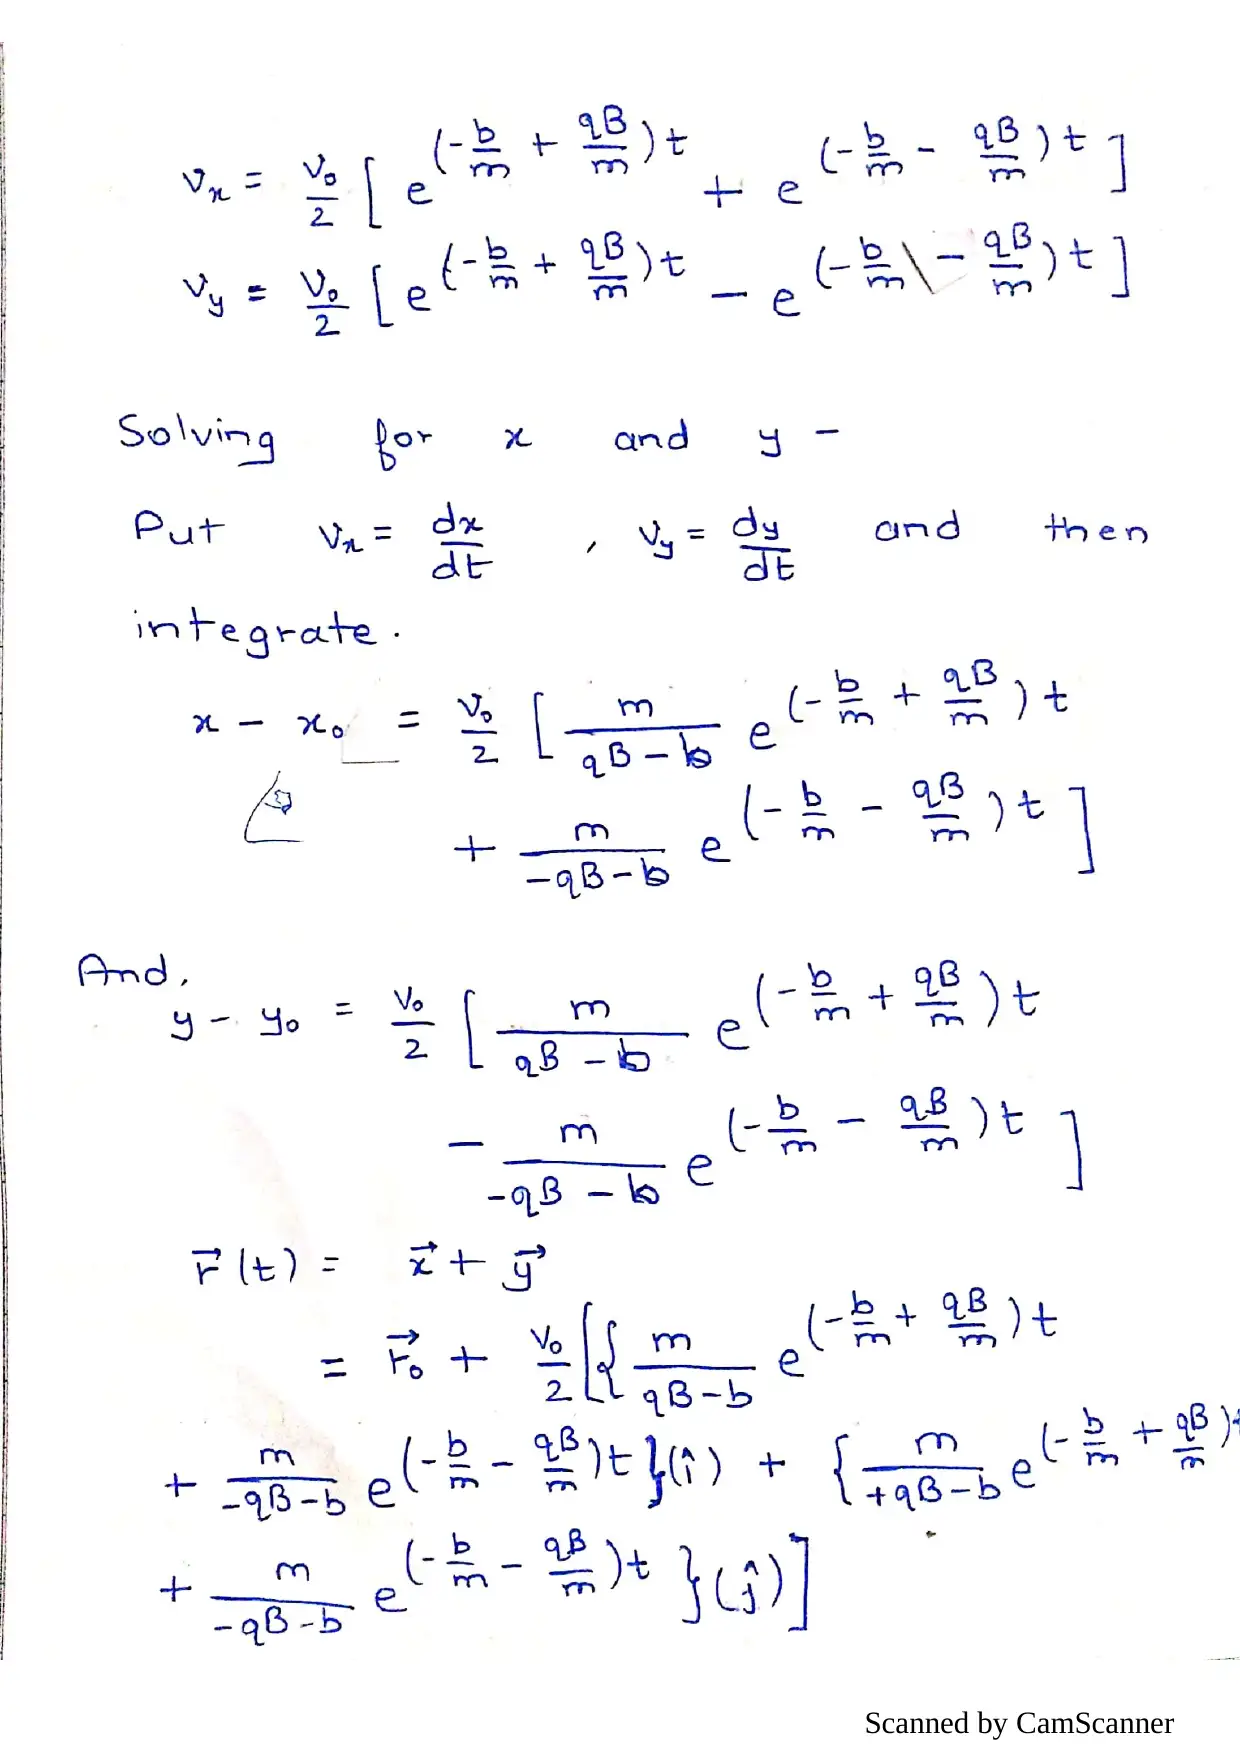 v_x = v₀/2 [ e^(-b/m + qB/m)t + e^(-b/m - qB/m)t ]
v_y = v₀/2 [ e^(-b/m + qB/m)t - e^(-b/m \- qB/m)t ]
Solving for x and y -
Put v_x = dx/dt , v_y = dy/dt and then
integrate.
x - x₀ = v₀/2 [ m/(qB-b) e^(-b/m + qB/m)t
+ m/(-qB-b) e^(-b/m - qB/m)t ]
And,
y - y₀ = v₀/2 [ m/(qB-b) e^(-b/m + qB/m)t
- m/(-qB-b) e^(-b/m - qB/m)t ]
r⃗(t) = x⃗ + y⃗
= r⃗₀ + v₀/2 [{ m/(qB-b) e^(-b/m + qB/m)t
+ m/(-qB-b) e^(-b/m - qB/m)t }(î) + { m/(+qB-b) e^(-b/m + qB/m)t
+ m/(-qB-b) e^(-b/m - qB/m)t }(ĵ)]
Scanned by CamScanner